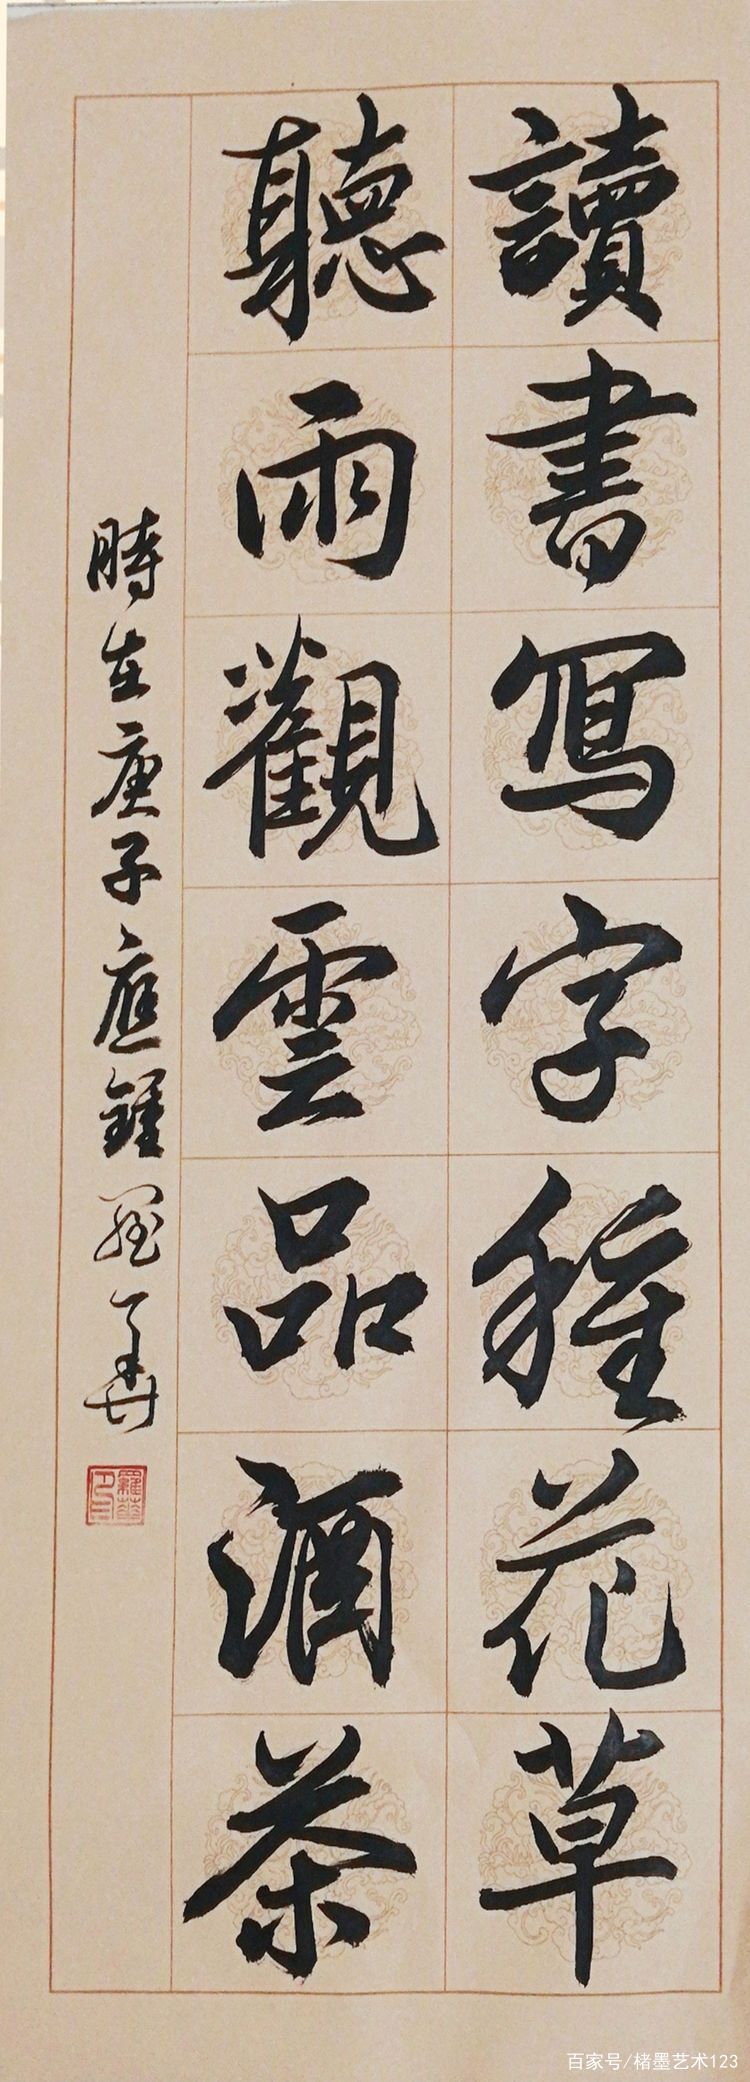 讀書寫字種花草
聽雨觀雲品酒茶
時在庚子應鐘羅華
羅華之印
百家号/楮墨艺术123